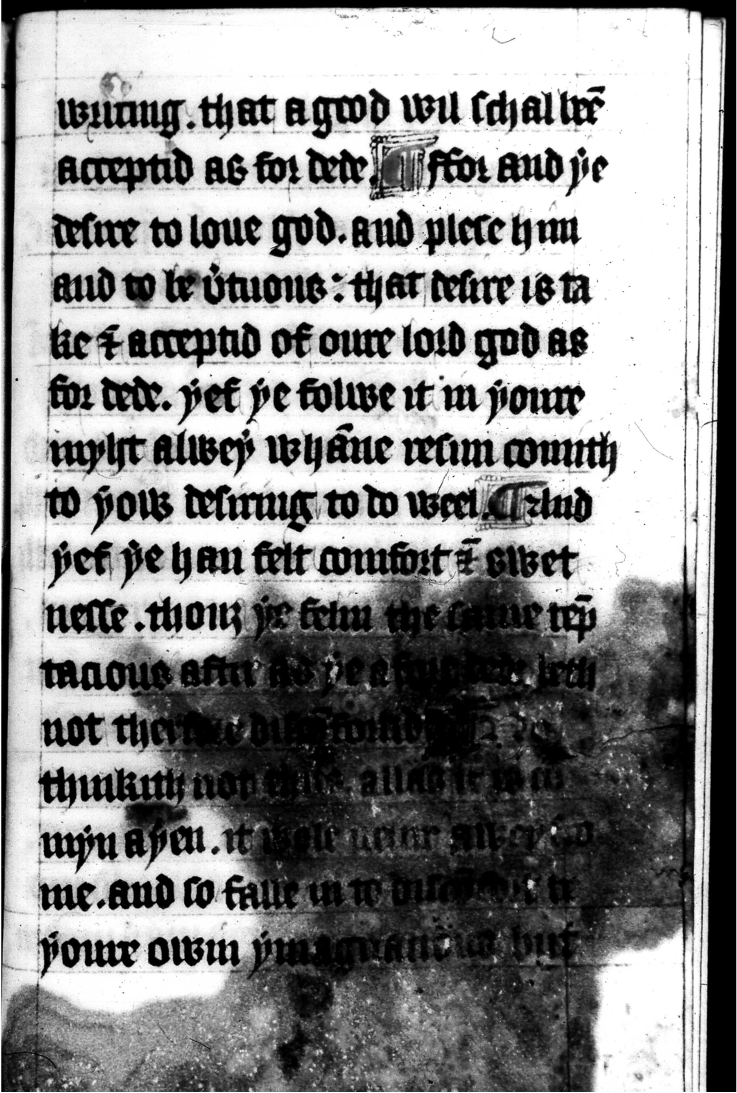 writing . that a good wil schal beē
acceptid as for dede . ¶ ffor and ẏe
desire to loue god . and plese him
and to be v̉tuous : that desire is ta
ke ⁊̄ acceptid of oure lord god as
for dede . ẏef ẏe folwe it in ẏoure
myht alweẏ whāne resun comith
to ẏow desiring to do weel . ¶ And
ẏef ẏe han felt comfort ⁊̄ swet
nesse . thouȝ ẏe felin the same tep̄
tacious after as ẏe
not
thinkith not thus . allas it is co
mẏn aẏen . it wole neuir alweẏ
me . and so falle in to
ẏoure owin but